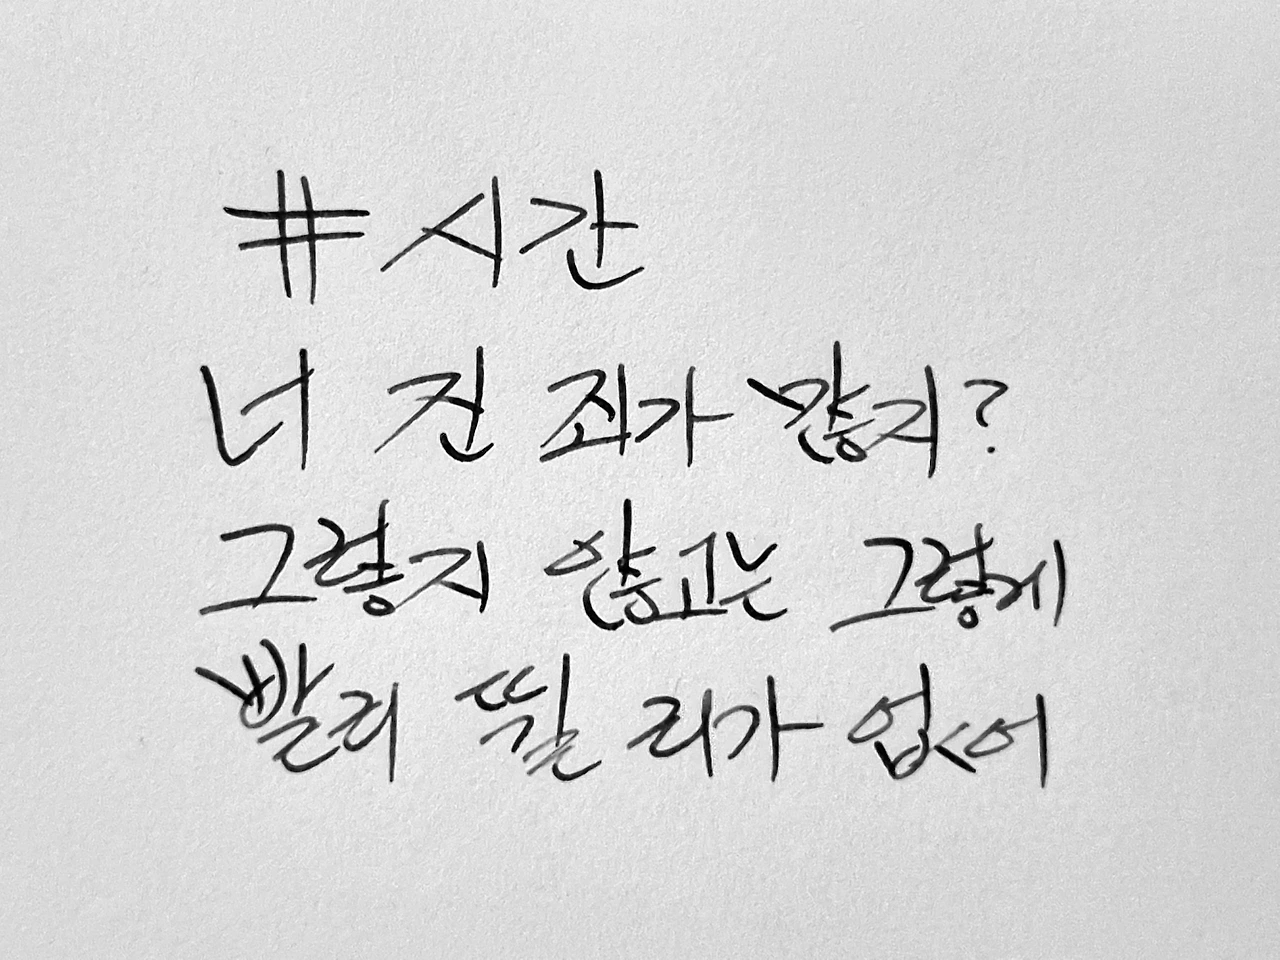 #시간
너 진 죄가 많지?
그렇지 않고는 그렇게
빨리 뛸 리가 없어